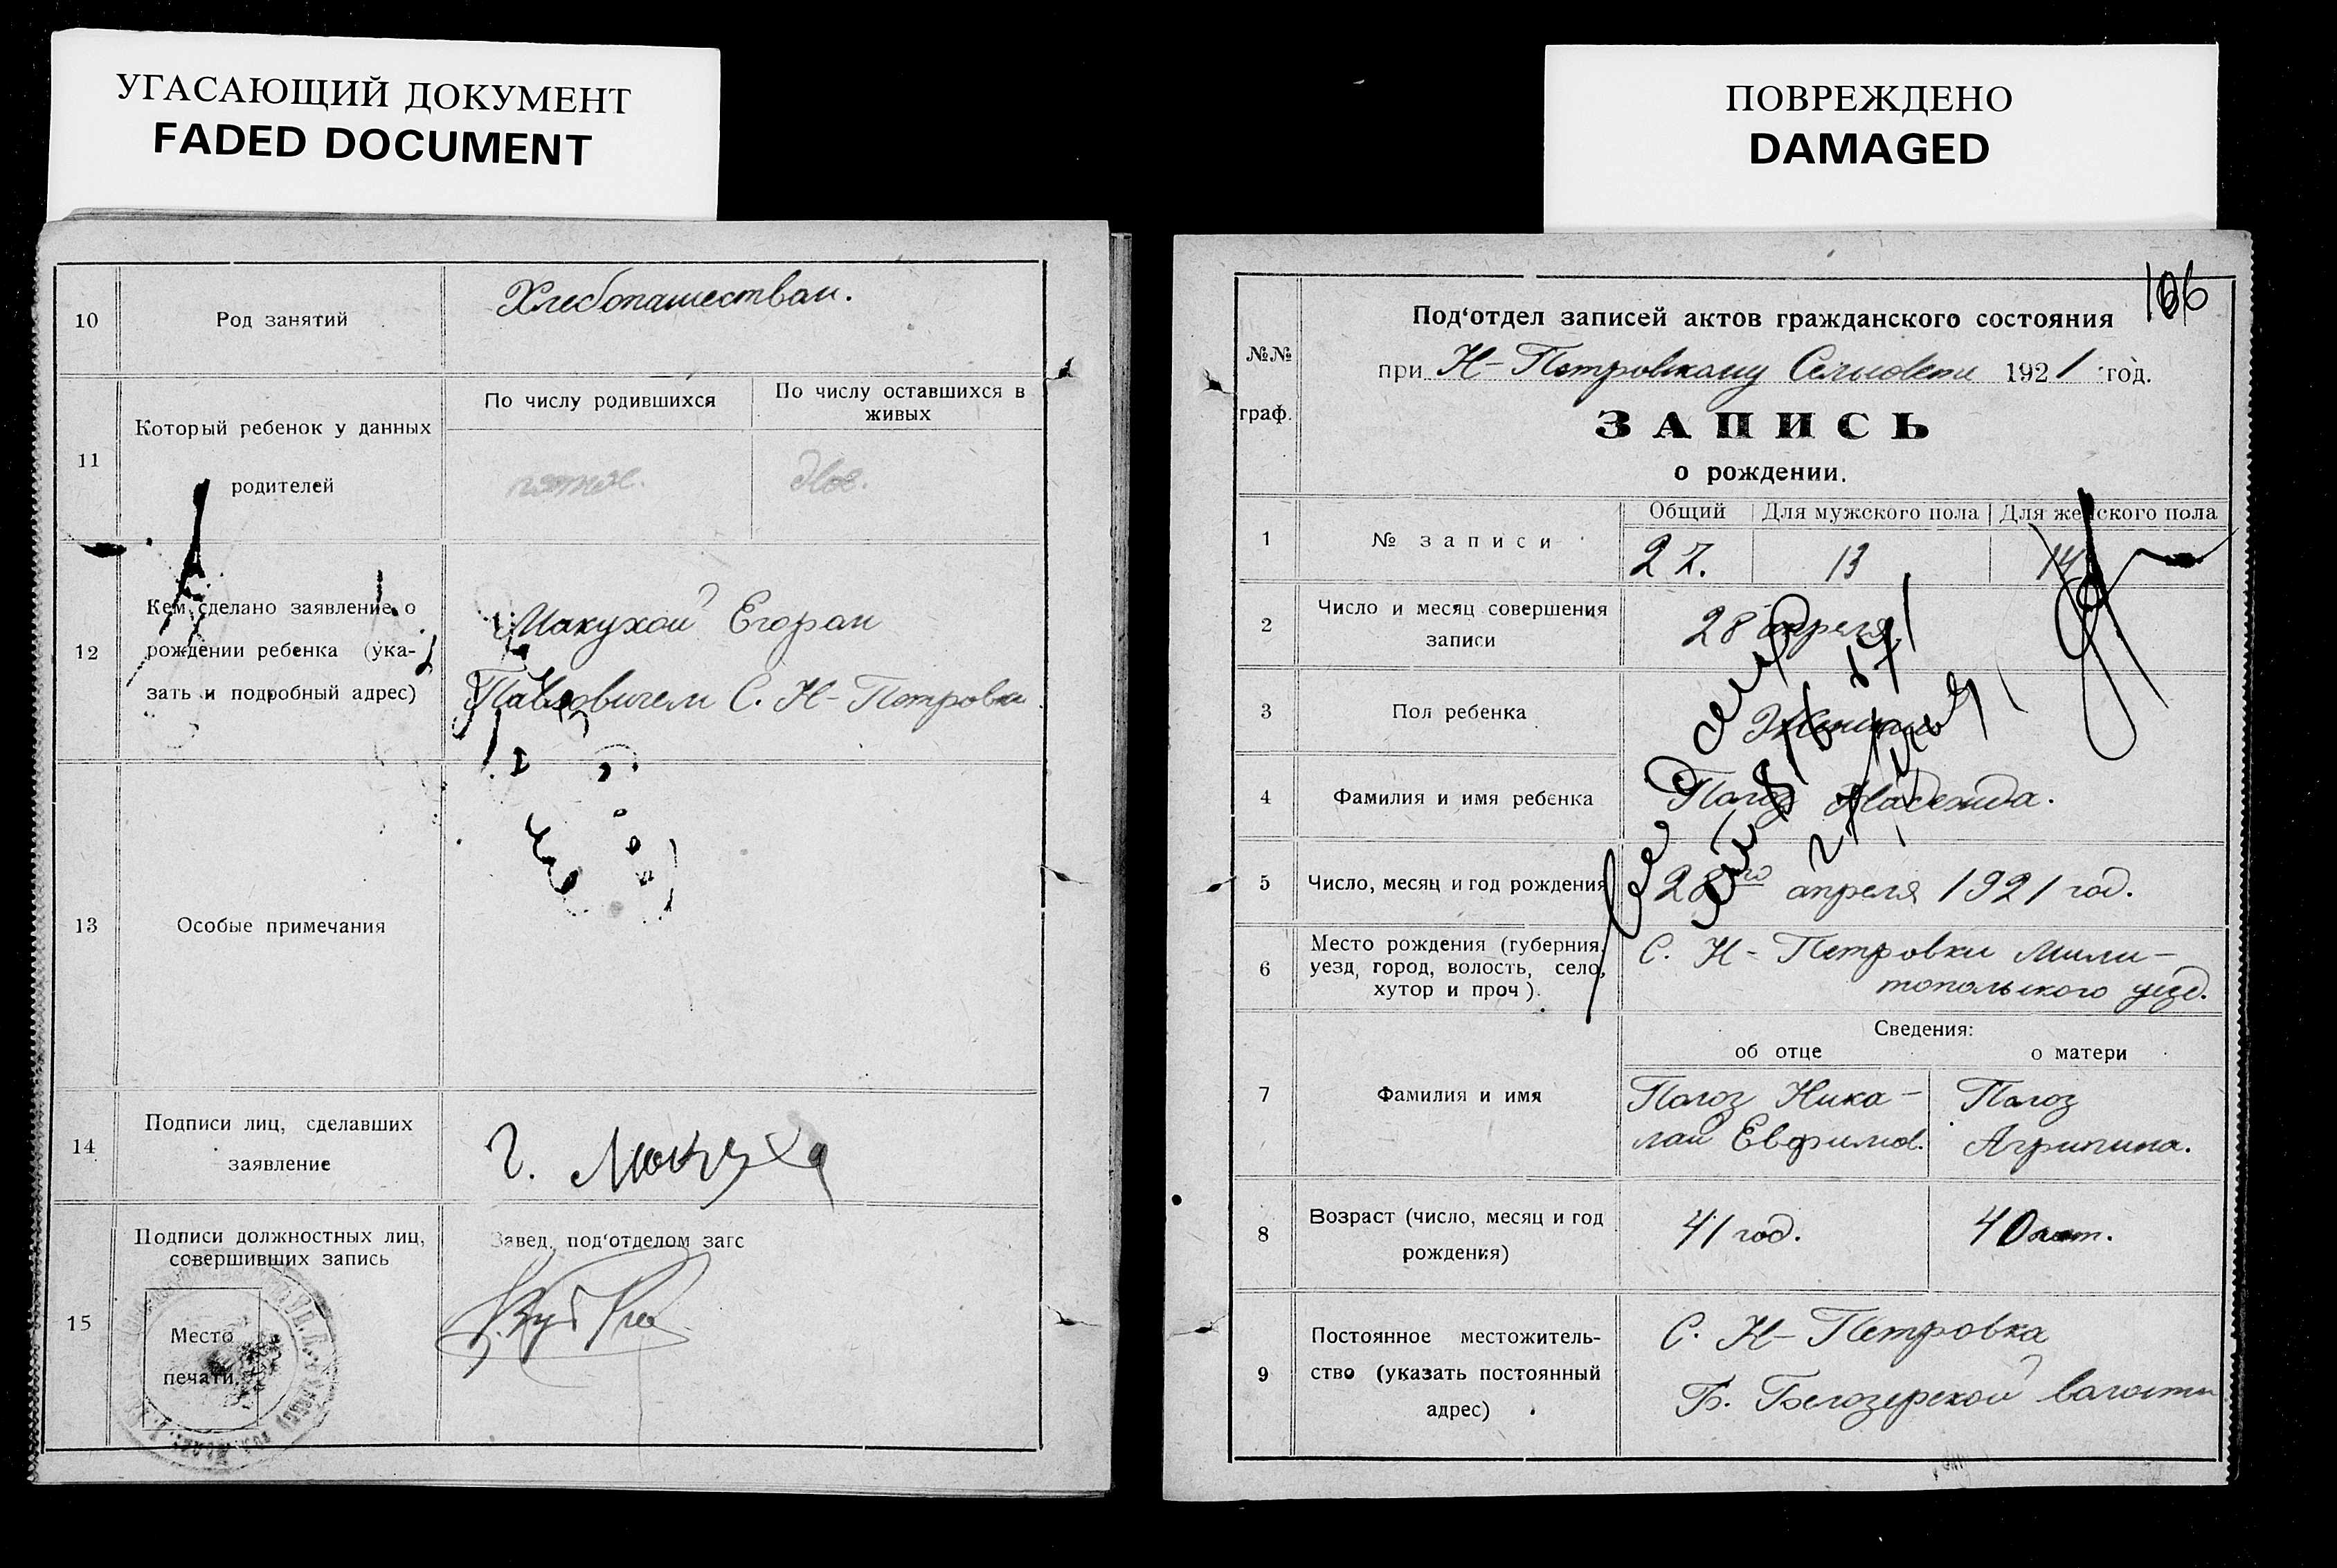 УГАСАЮЩИЙ ДОКУМЕНТ
FADED DOCUMENT
10
Род занятий
Хлебопашеством.
11
Который ребенок у данных
родителей
По числу родившихся
По числу оставшихся в
живых
двое.
12
Кем сделано заявление о
рождении ребенка (ука-
зать и подробный адрес)
Макухой Егором
Павловичем С. Н-Петровки
13
Особые примечания
14
Подписи лиц, сделавших
заявление
Г. Макуха
15
Подписи должностных лиц,
совершивших запись
Место
печати.
Завед. под‘отделом загс
ПОВРЕЖДЕНО
DAMAGED
106
№№
граф.
Под‘отдел записей актов гражданского состояния
при Н-Петровскому Сельсовете 1921 год.
ЗАПИСЬ
о рождении.
1
№ записи
Общий
Для мужского пола
Для женского пола
27.
13
14
2
Число и месяц совершения
записи
28 апреля
3
Пол ребенка
4
Фамилия и имя ребенка
Полоз Надежда.
5
Число, месяц и год рождения
28го апреля 1921 год.
6
Место рождения (губерния,
уезд, город, волость, село,
хутор и проч).
С. Н-Петровки Мили-
топольского уезд.
Сведения:
об отце
о матери
7
Фамилия и имя
Полоз Нико-
лай Евфимов.
Полоз
Агрипина.
8
Возраст (число, месяц и год
рождения)
41 год.
40 лет.
9
Постоянное местожитель-
ство (указать постоянный
адрес)
С. Н-Петровка
Б. Белозерской волости